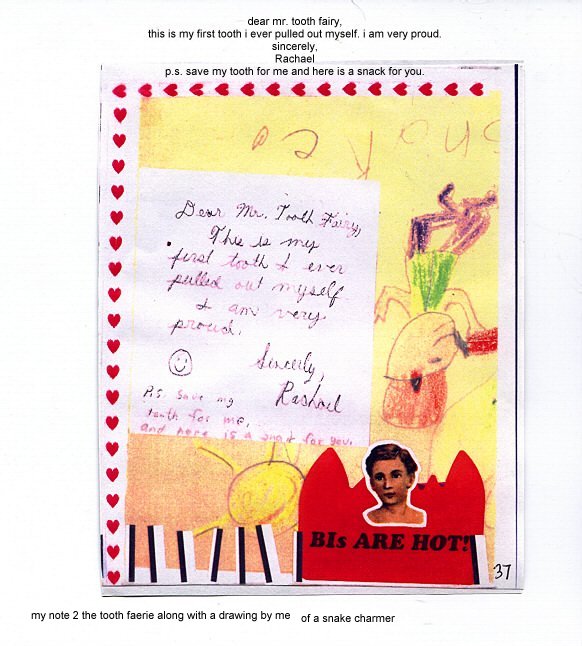 dear mr. tooth fairy,
this is my first tooth i ever pulled out myself. i am very proud.
sincerely,
Rachael
p.s. save my tooth for me and here is a snack for you.
Dear Mr. Tooth Fairy,
This is my
first tooth I ever
pulled out myself
I am very
proud.
Sincerly,
Rachael
P.S. Save my
tooth for me,
and here is a snak for you.
BIs ARE HOT!
37
my note 2 the tooth faerie along with a drawing by me of a snake charmer